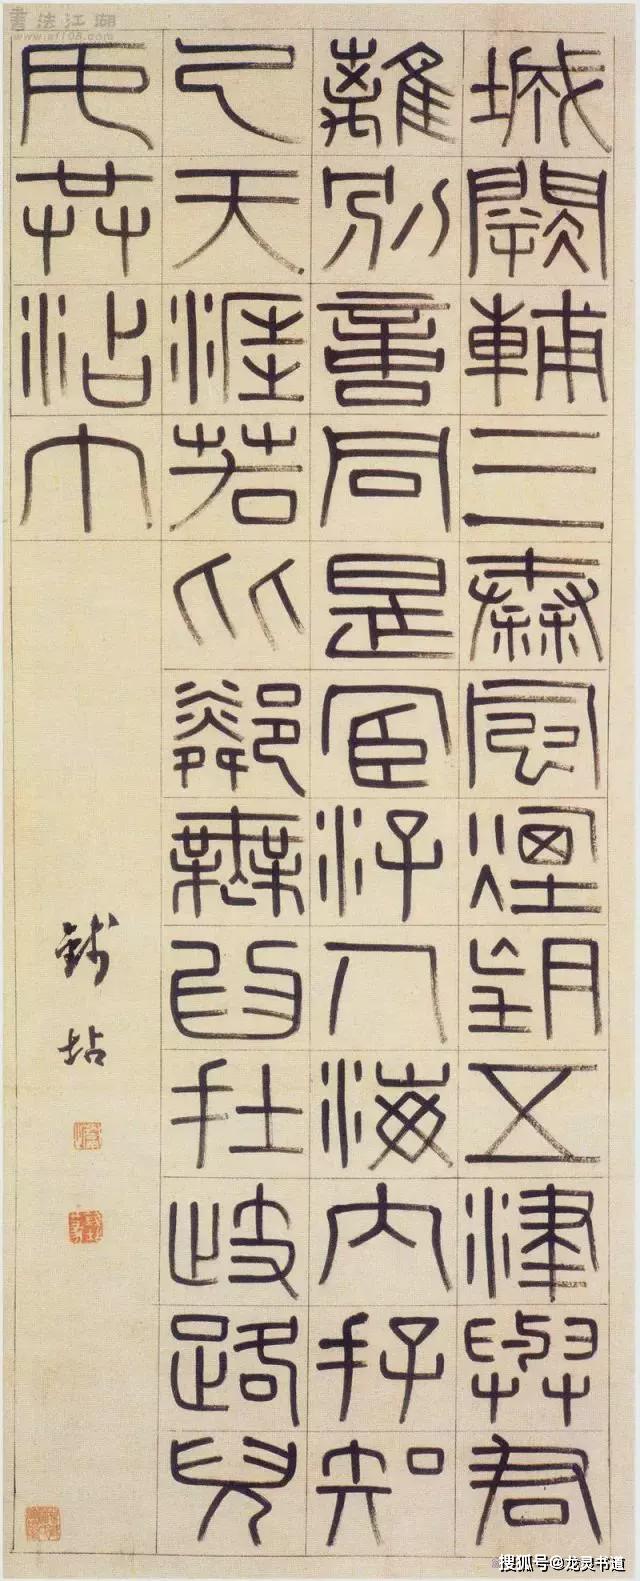 城闕輔三秦風煙望五津與君
離別意同是宦游人海內存知
己天涯若比鄰無爲在歧路兒
女共沾巾
錢坫
書法江湖
www.sf108.com
搜狐号@龙灵书道